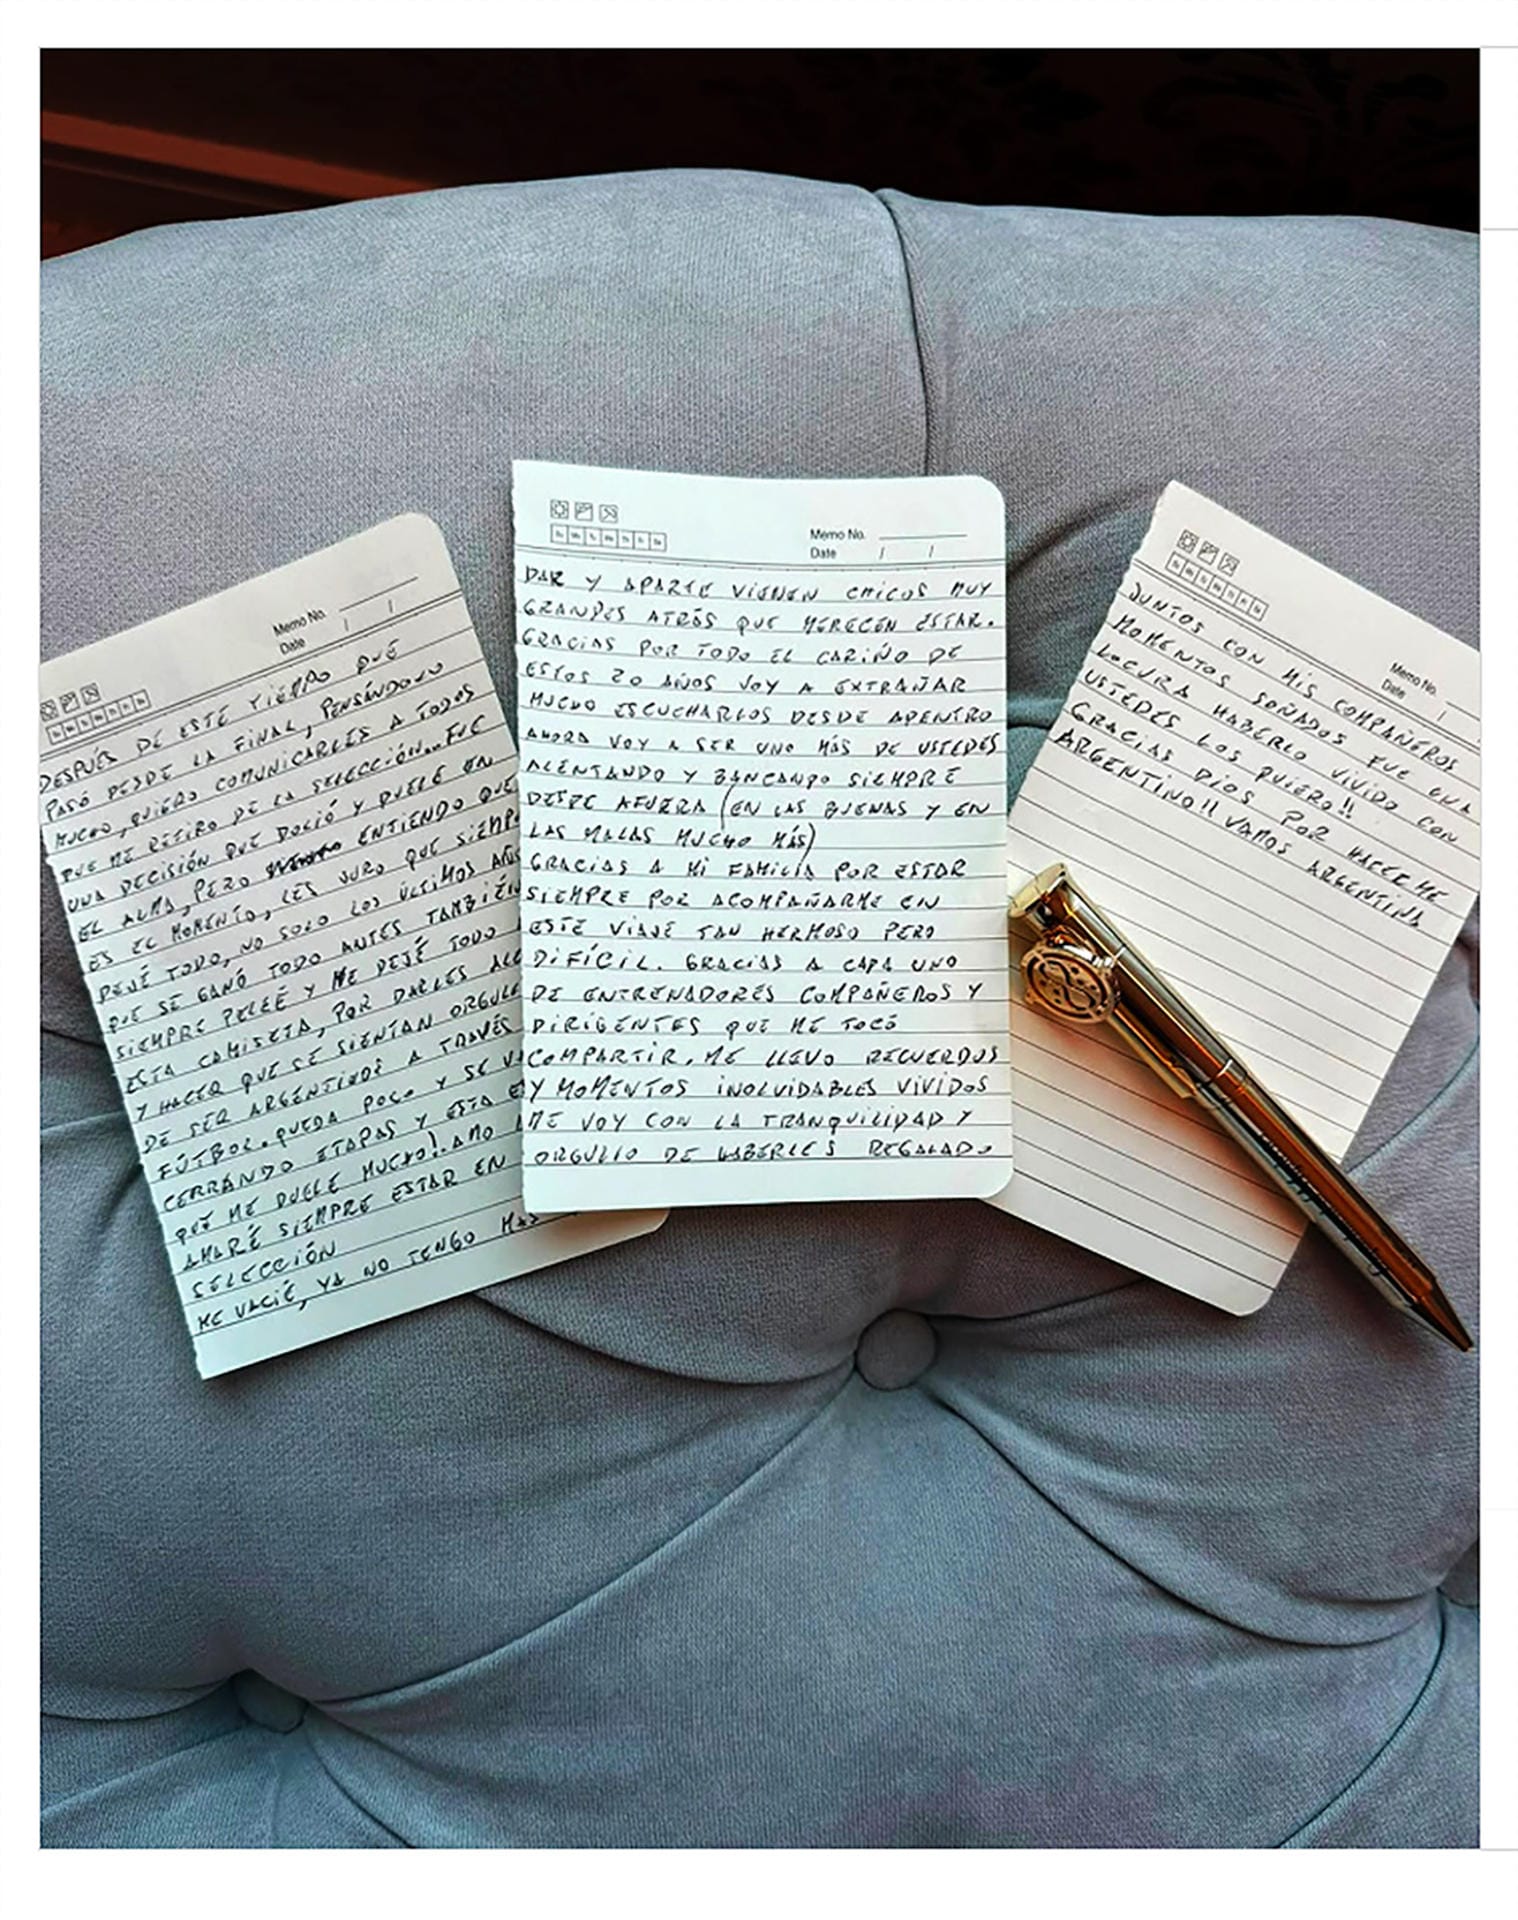 Memo No.
Date / /
DESPUÉS DE ESTE TIEMPO QUE
PASÓ DESDE LA FINAL, PENSÁNDOLO
MUCHO, QUIERO COMUNICARLES A TODOS
QUE ME RETIRO DE LA SELECCIÓN... FUE
UNA DECISIÓN QUE DOLIÓ Y DUELE EN
EL ALMA, PERO ENTIENDO QUE
ES EL MOMENTO, LES JURO QUE SIEMP
DEJÉ TODO, NO SOLO LOS ÚLTIMOS AÑOS
QUE SE GANÓ TODO ANTES TAMBIÉN
SIEMPRE PELEÉ Y ME DEJÉ TODO
ESTA CAMISETA, POR DARLES ALE
Y HACER QUE SE SIENTAN ORGULL
DE SER ARGENTINOS A TRAVÉS
FÚTBOL. QUEDA POCO Y SE V
CERRANDO ETAPAS Y ESTA E
QUE ME DUELE MUCHO!. AMO
AMARÉ SIEMPRE ESTAR EN
SELECCIÓN
ME VACIÉ, YA NO TENGO MAS
Memo No.
Date / /
DAR Y APARTE VIENEN CHICOS MUY
GRANDES ATRÁS QUE MERECEN ESTAR.
GRACIAS POR TODO EL CARIÑO DE
ESTOS 20 AÑOS VOY A EXTRAÑAR
MUCHO ESCUCHARLOS DESDE ADENTRO
AHORA VOY A SER UNO MÁS DE USTEDES
ALENTANDO Y BANCANDO SIEMPRE
DESDE AFUERA (EN LAS BUENAS Y EN
LAS MALAS MUCHO MÁS)
GRACIAS A MI FAMILIA POR ESTAR
SIEMPRE POR ACOMPAÑARME EN
ESTE VIAJE TAN HERMOSO PERO
DIFÍCIL. GRACIAS A CADA UNO
DE ENTRENADORES COMPAÑEROS Y
DIRIGENTES QUE ME TOCÓ
COMPARTIR. ME LLEVO RECUERDOS
Y MOMENTOS INOLVIDABLES VIVIDOS
ME VOY CON LA TRANQUILIDAD Y
ORGULLO DE HABERLES REGALADO
Memo No.
Date /
JUNTOS CON MIS COMPAÑEROS
MOMENTOS SOÑADOS FUE UNA
LOCURA HABERLO VIVIDO CON
USTEDES LOS QUIERO!!
GRACIAS DIOS POR HACERME
ARGENTINO!! VAMOS ARGENTINA